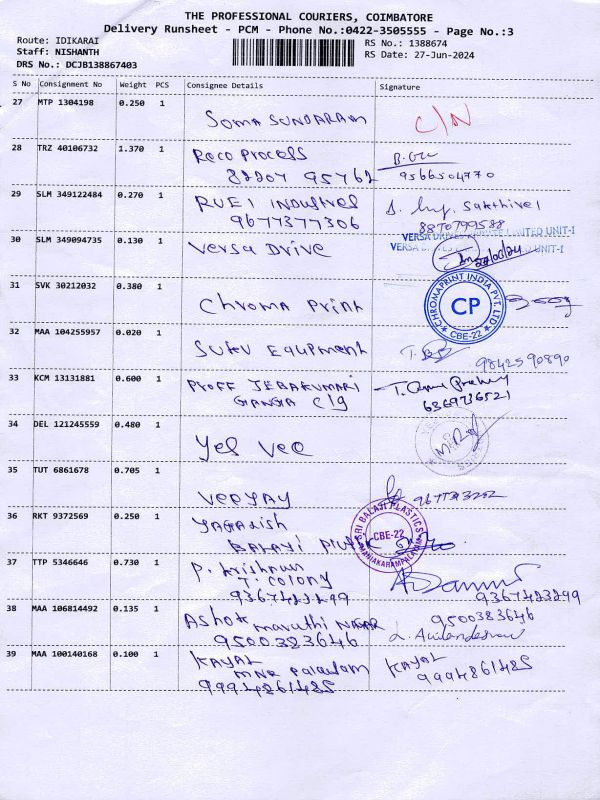 THE PROFESSIONAL COURIERS, COIMBATORE
Delivery Runsheet - PCM - Phone No.:0422-3505555 - Page No.:3
Route: IDIKARAI
Staff: NISHANTH
DRS No.: DCJB138867403
RS No.: 1388674
RS Date: 27-Jun-2024
S No Consignment No Weight PCS Consignee Details Signature
27 MTP 1304198 0.250 1 Soma Sundaram C/N
28 TRZ 40106732 1.370 1 Reco Process
82207 95762 9566504770
29 SLM 349122484 0.270 1 RUEI Industries Sakthivel
9677377306 8870799588
30 SLM 349094735 0.130 1 Versa Drive
VERSA DRIVES PRIVATE LIMITED UNIT-I
VERSA UNIT-I
31 SVK 30212032 0.380 1 Chroma Print
CHROMAPRINT INDIA PVT. LTD
CP
CBE-22
32 MAA 104255957 0.020 1 Suku Equpment
9842590890
33 KCM 13131881 0.600 1 Proff Jebakumari
Ganga clg 6369736521
34 DEL 121245559 0.480 1 Yes Vee
35 TUT 6861678 0.705 1 Veejay
36 RKT 9372569 0.250 1 Jagadish
Balaji
SRI BALAJI PLASTICS
CBE-22
MANIAKARAMPALAYAM
37 TTP 5346646 0.730 1 P. Krishnan
T. Colony
9367423299 9367423299
38 MAA 106814492 0.135 1 Ashok maruthi Nagar 9500383646
9500383646
39 MAA 100140168 0.100 1 Kayal Kayal
MNR Palayam 9994861485
9994861485